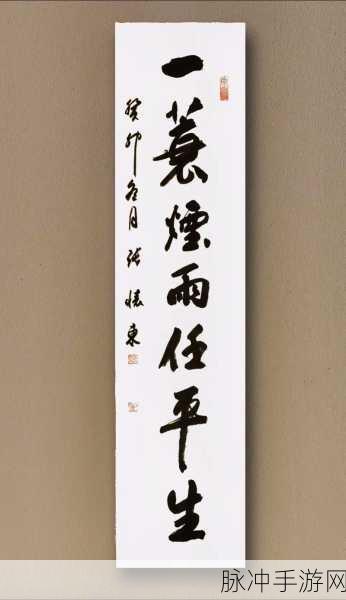 一蓑煙雨任平生
癸卯冬月張懷東
脉冲手游网